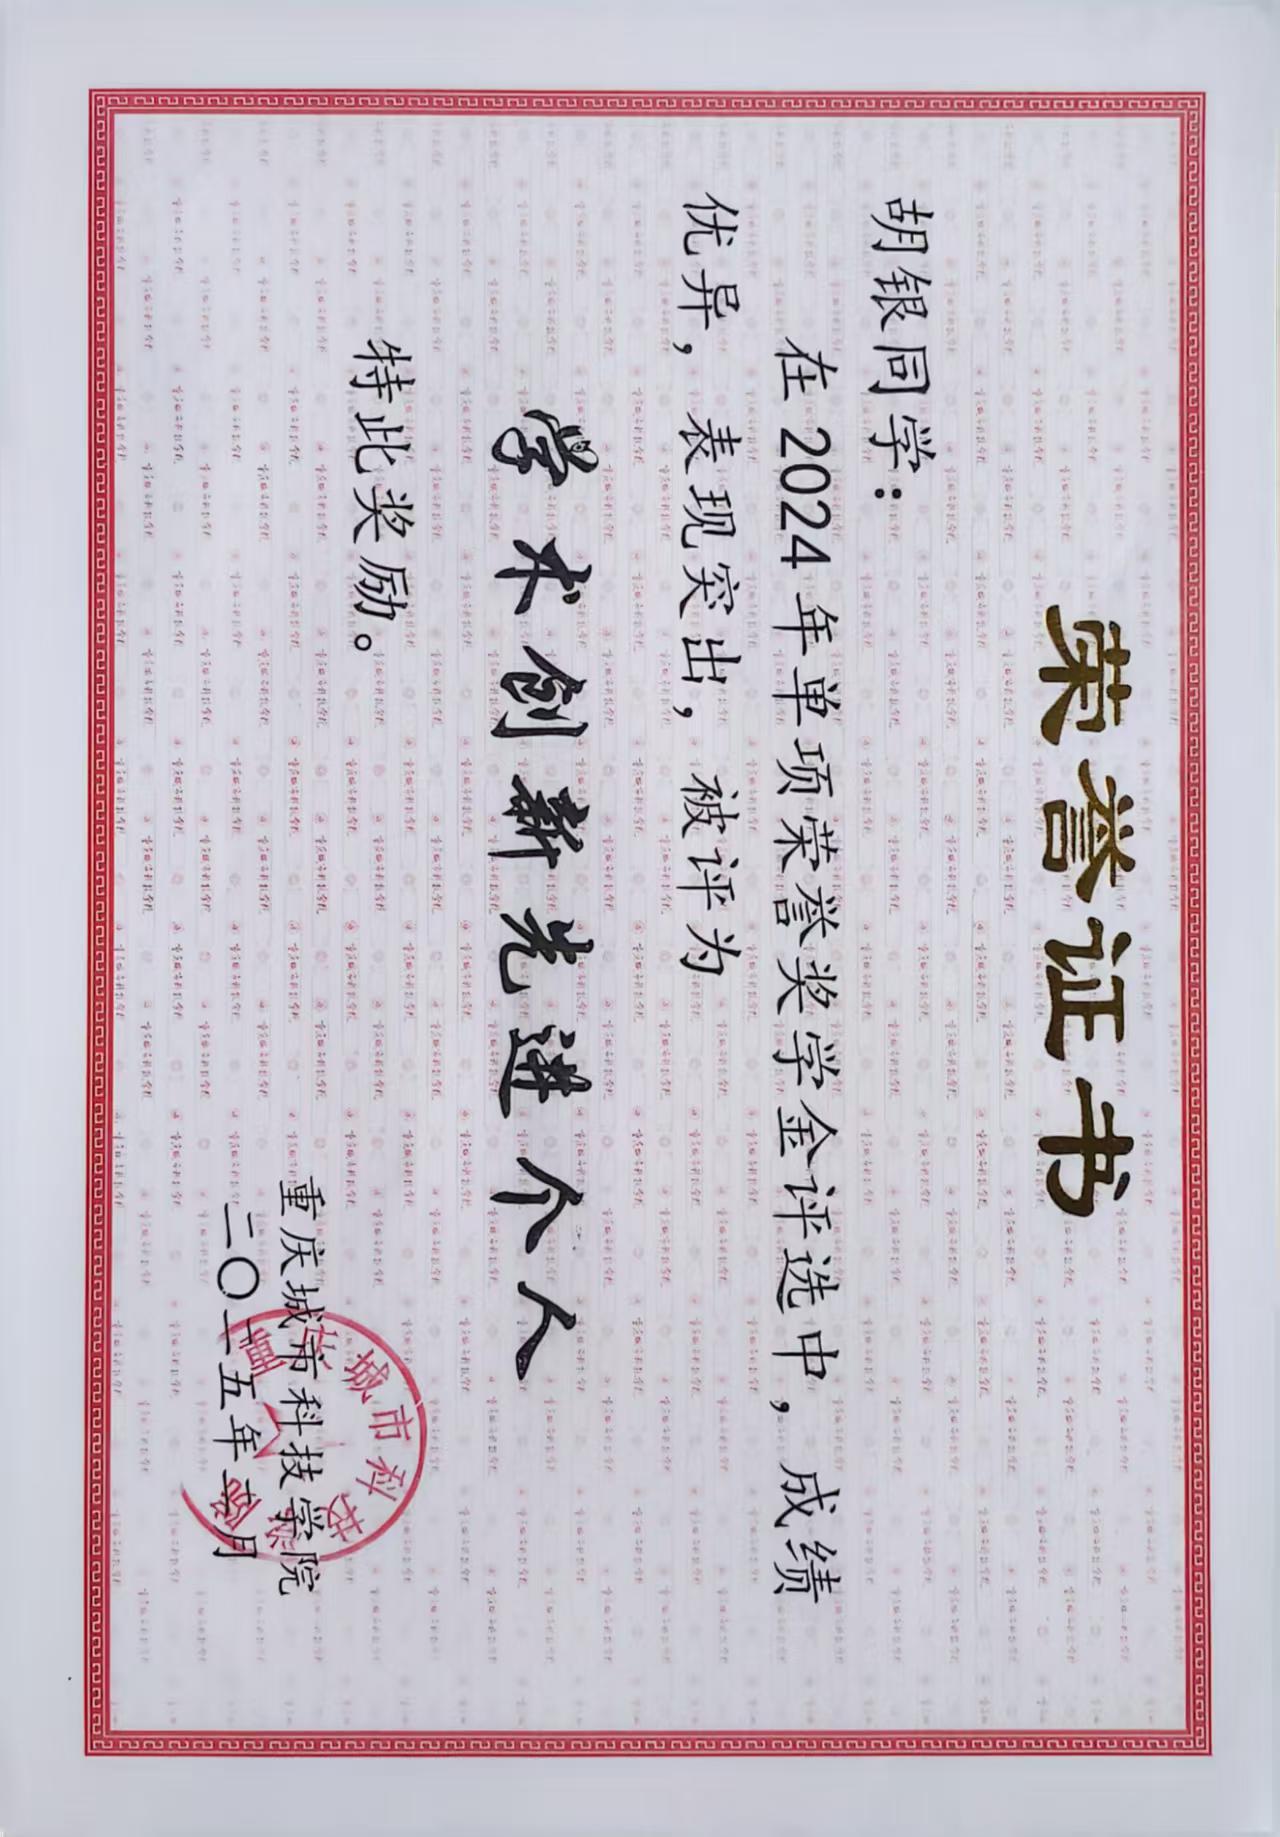 荣誉证书
胡银同学：
在2024年单项荣誉奖学金评选中，成绩
优异，表现突出，被评为
学术创新先进个人
特此奖励。
重庆城市科技学院
二〇二五年三月